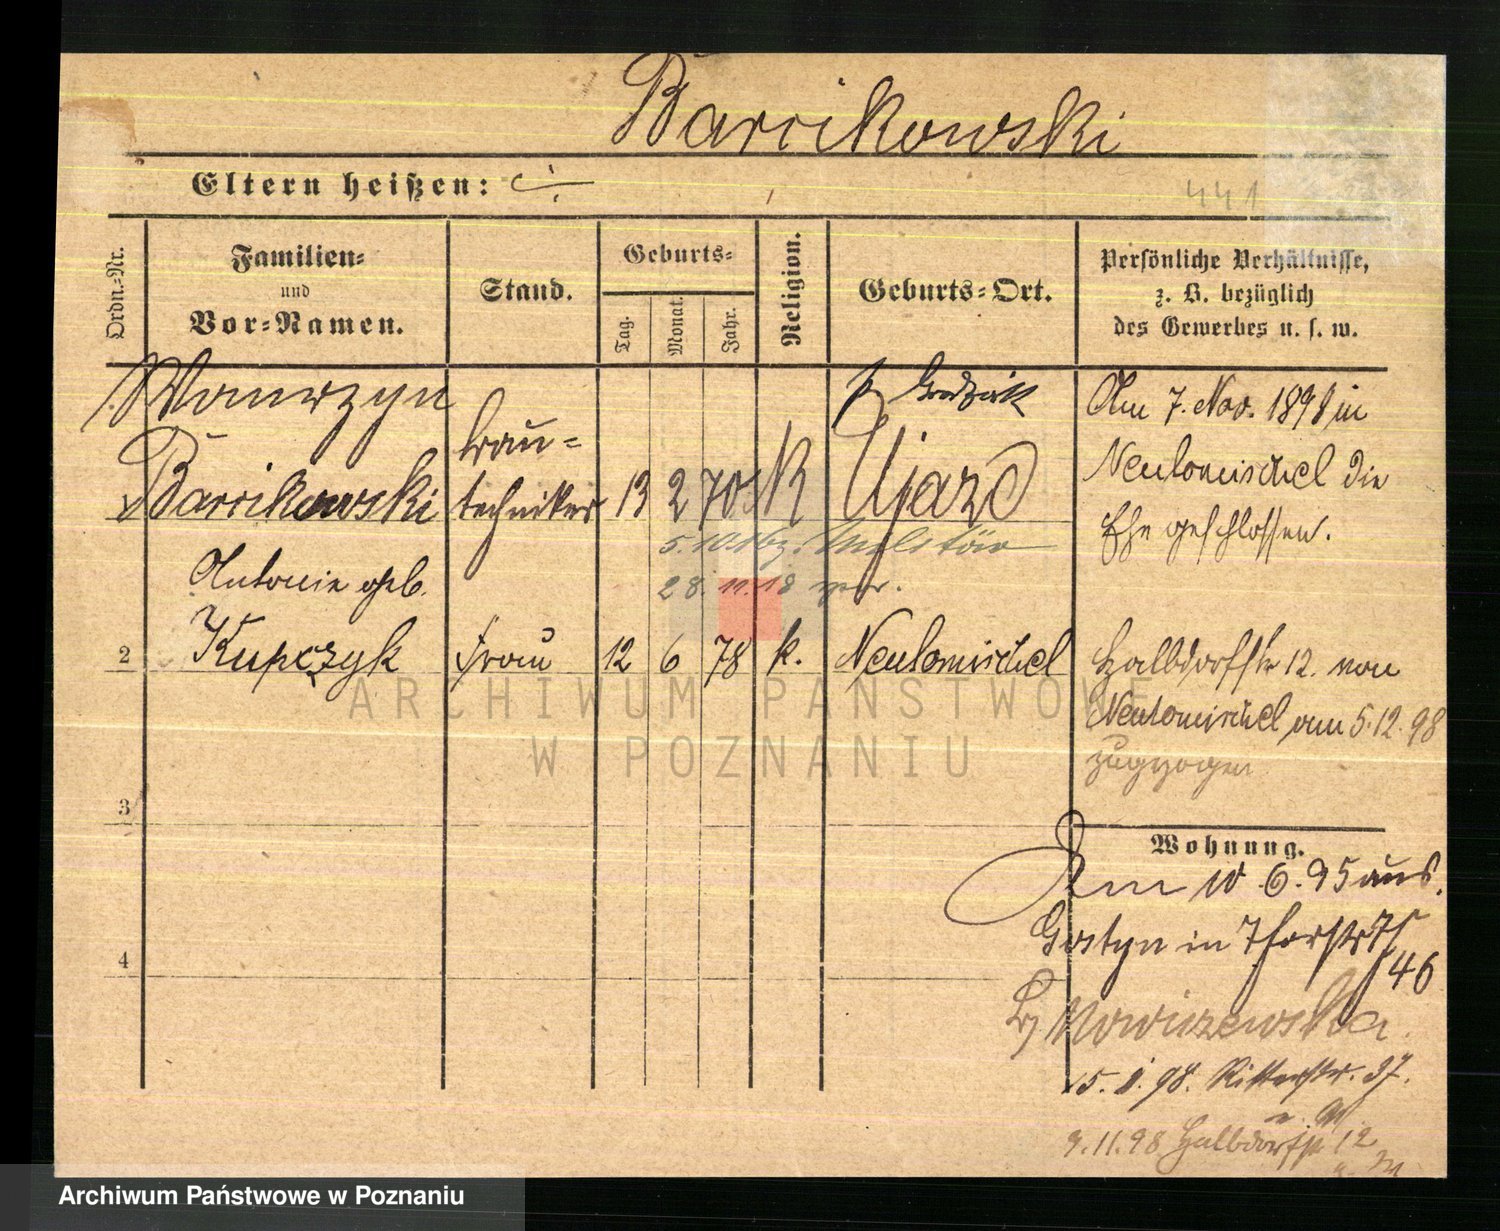 Barcikowski
Eltern heißen:
441
Ordn.-Nr.
Familien-
und
Vor-Namen.
Stand.
Geburts-
Tag.
Monat.
Jahr.
Religion.
Geburts-Ort.
Persönliche Verhältnisse,
z. B. bezüglich
des Gewerbes u. s. w.
Wawrzyn
Barcikowski
techniker
13
2
70
K
Ujazd
Am 7. Nov. 1898 in
Neutomischel die
Ehe geschlossen.
Militär
28. 11. 18
Antonie geb.
2
Kupczyk
Frau
12
6
78
k.
Neutomischel
Halbdorfstr 12. von
Neutomischel am 5.12.98
zugezogen
3
Wohnung.
Am 10. 6. 95 aus
Gostyn in
46
4
Nowiszewska
98. Ritterstr. 37.
9.11.98 Halbdorfstr 12
ARCHIWUM PAŃSTWOWE
W POZNANIU
Archiwum Państwowe w Poznaniu